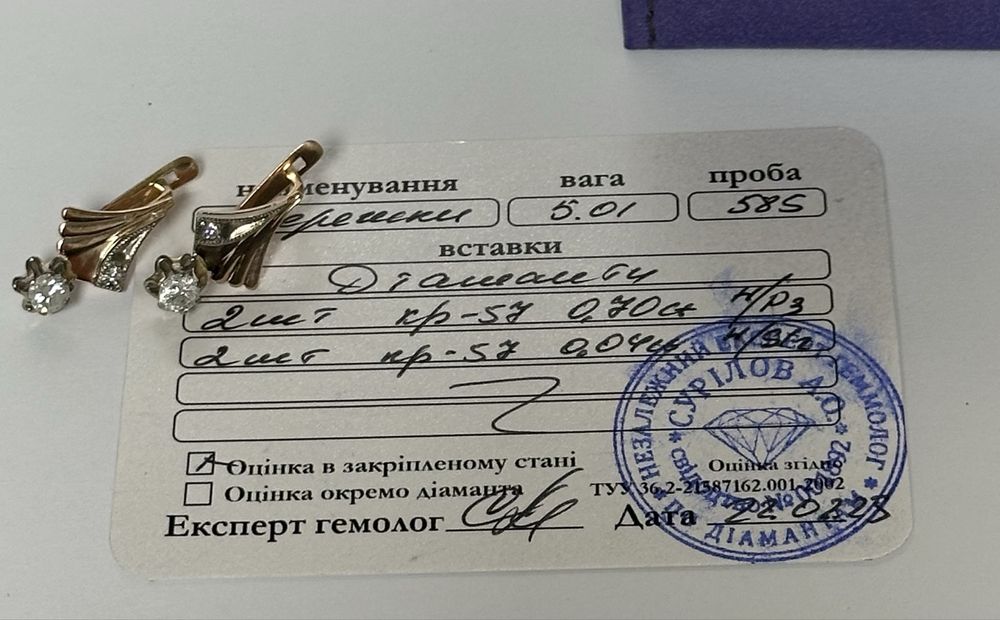 найменування вага проба
Сережки 5.01 585
вставки
Діаманти
2шт кр-57 0,70ct 4/8з
2шт кр-57 0,04ct
Оцінка в закріпленому стані
Оцінка окремо діаманта
Оцінка згідно
ТУУ 36.2-21587162.001-2002
Експерт гемолог Дата 22.02.23
НЕЗАЛЕЖНИЙ ЕКСПЕРТ ГЕММОЛОГ
СУРІЛОВ А.О.
свідоцтво №
ДІАМАНТИ